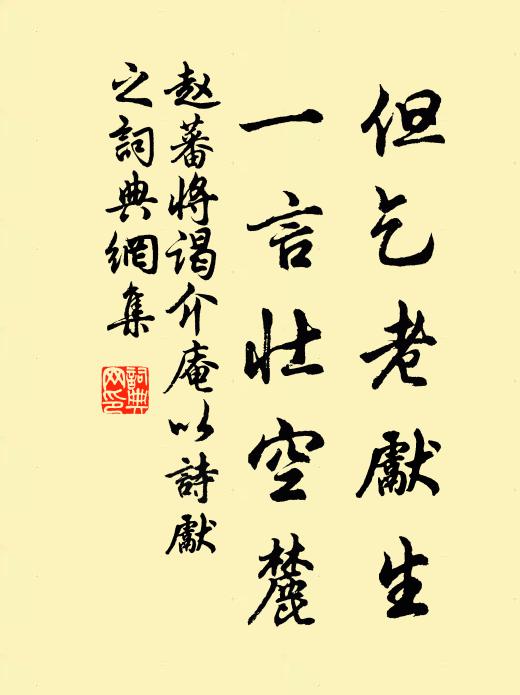 但乞老獻生
一言壯空麓
赵蕃將谒介庵以詩獻
之詞典網集
詞典網印